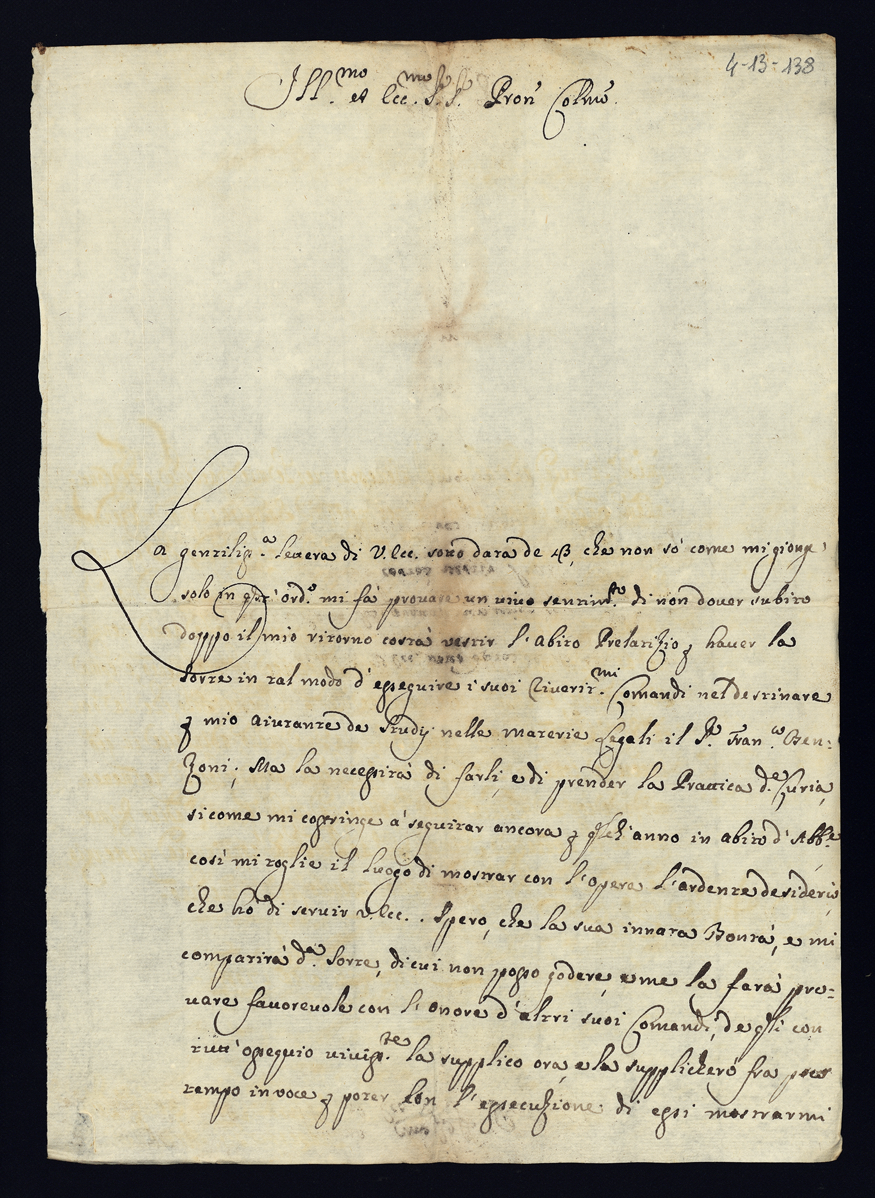 4-13-138
Ill.mo et Ecc.mo S.r S.r Pron Colmo.
La gentiliss.a lettera di V. Ecc. sotto data de 13, che non sò come mi gionge
solo in qst' ord.o mi fà provare un vivo sentim.to di non dover subito
doppo il mio ritorno costà vestir l'abito Pretatizio p haver la
sorte in tal modo d'esseguire i suoi riverit.mi Comandi nel destinare
p mio aiutante de Studij nelle materie Legali il S.r Fran.co Ben-
zoni; Ma la necessità di farli, e di prender la Prattica d.e Curia,
si come mi costringe à seguitar ancora p qlch'anno in abito d'Abb.e
così mi toglie il luogo di mostrar con l'opera l'ardente desiderio,
che hò di servir V. Ecc. . Spero, che la sua innata Bontà, e mi
compatirà d.a Sorte, di cui non posso godere, e me la farà pro-
vare favorevole con l'onore d'altri suoi Comandi, de qsti con
tutt'ossequio viviss.te la supplico ora, e la supplicherò fra poco
tempo in voce p poter con l'essecuzione di essi mostrarmi